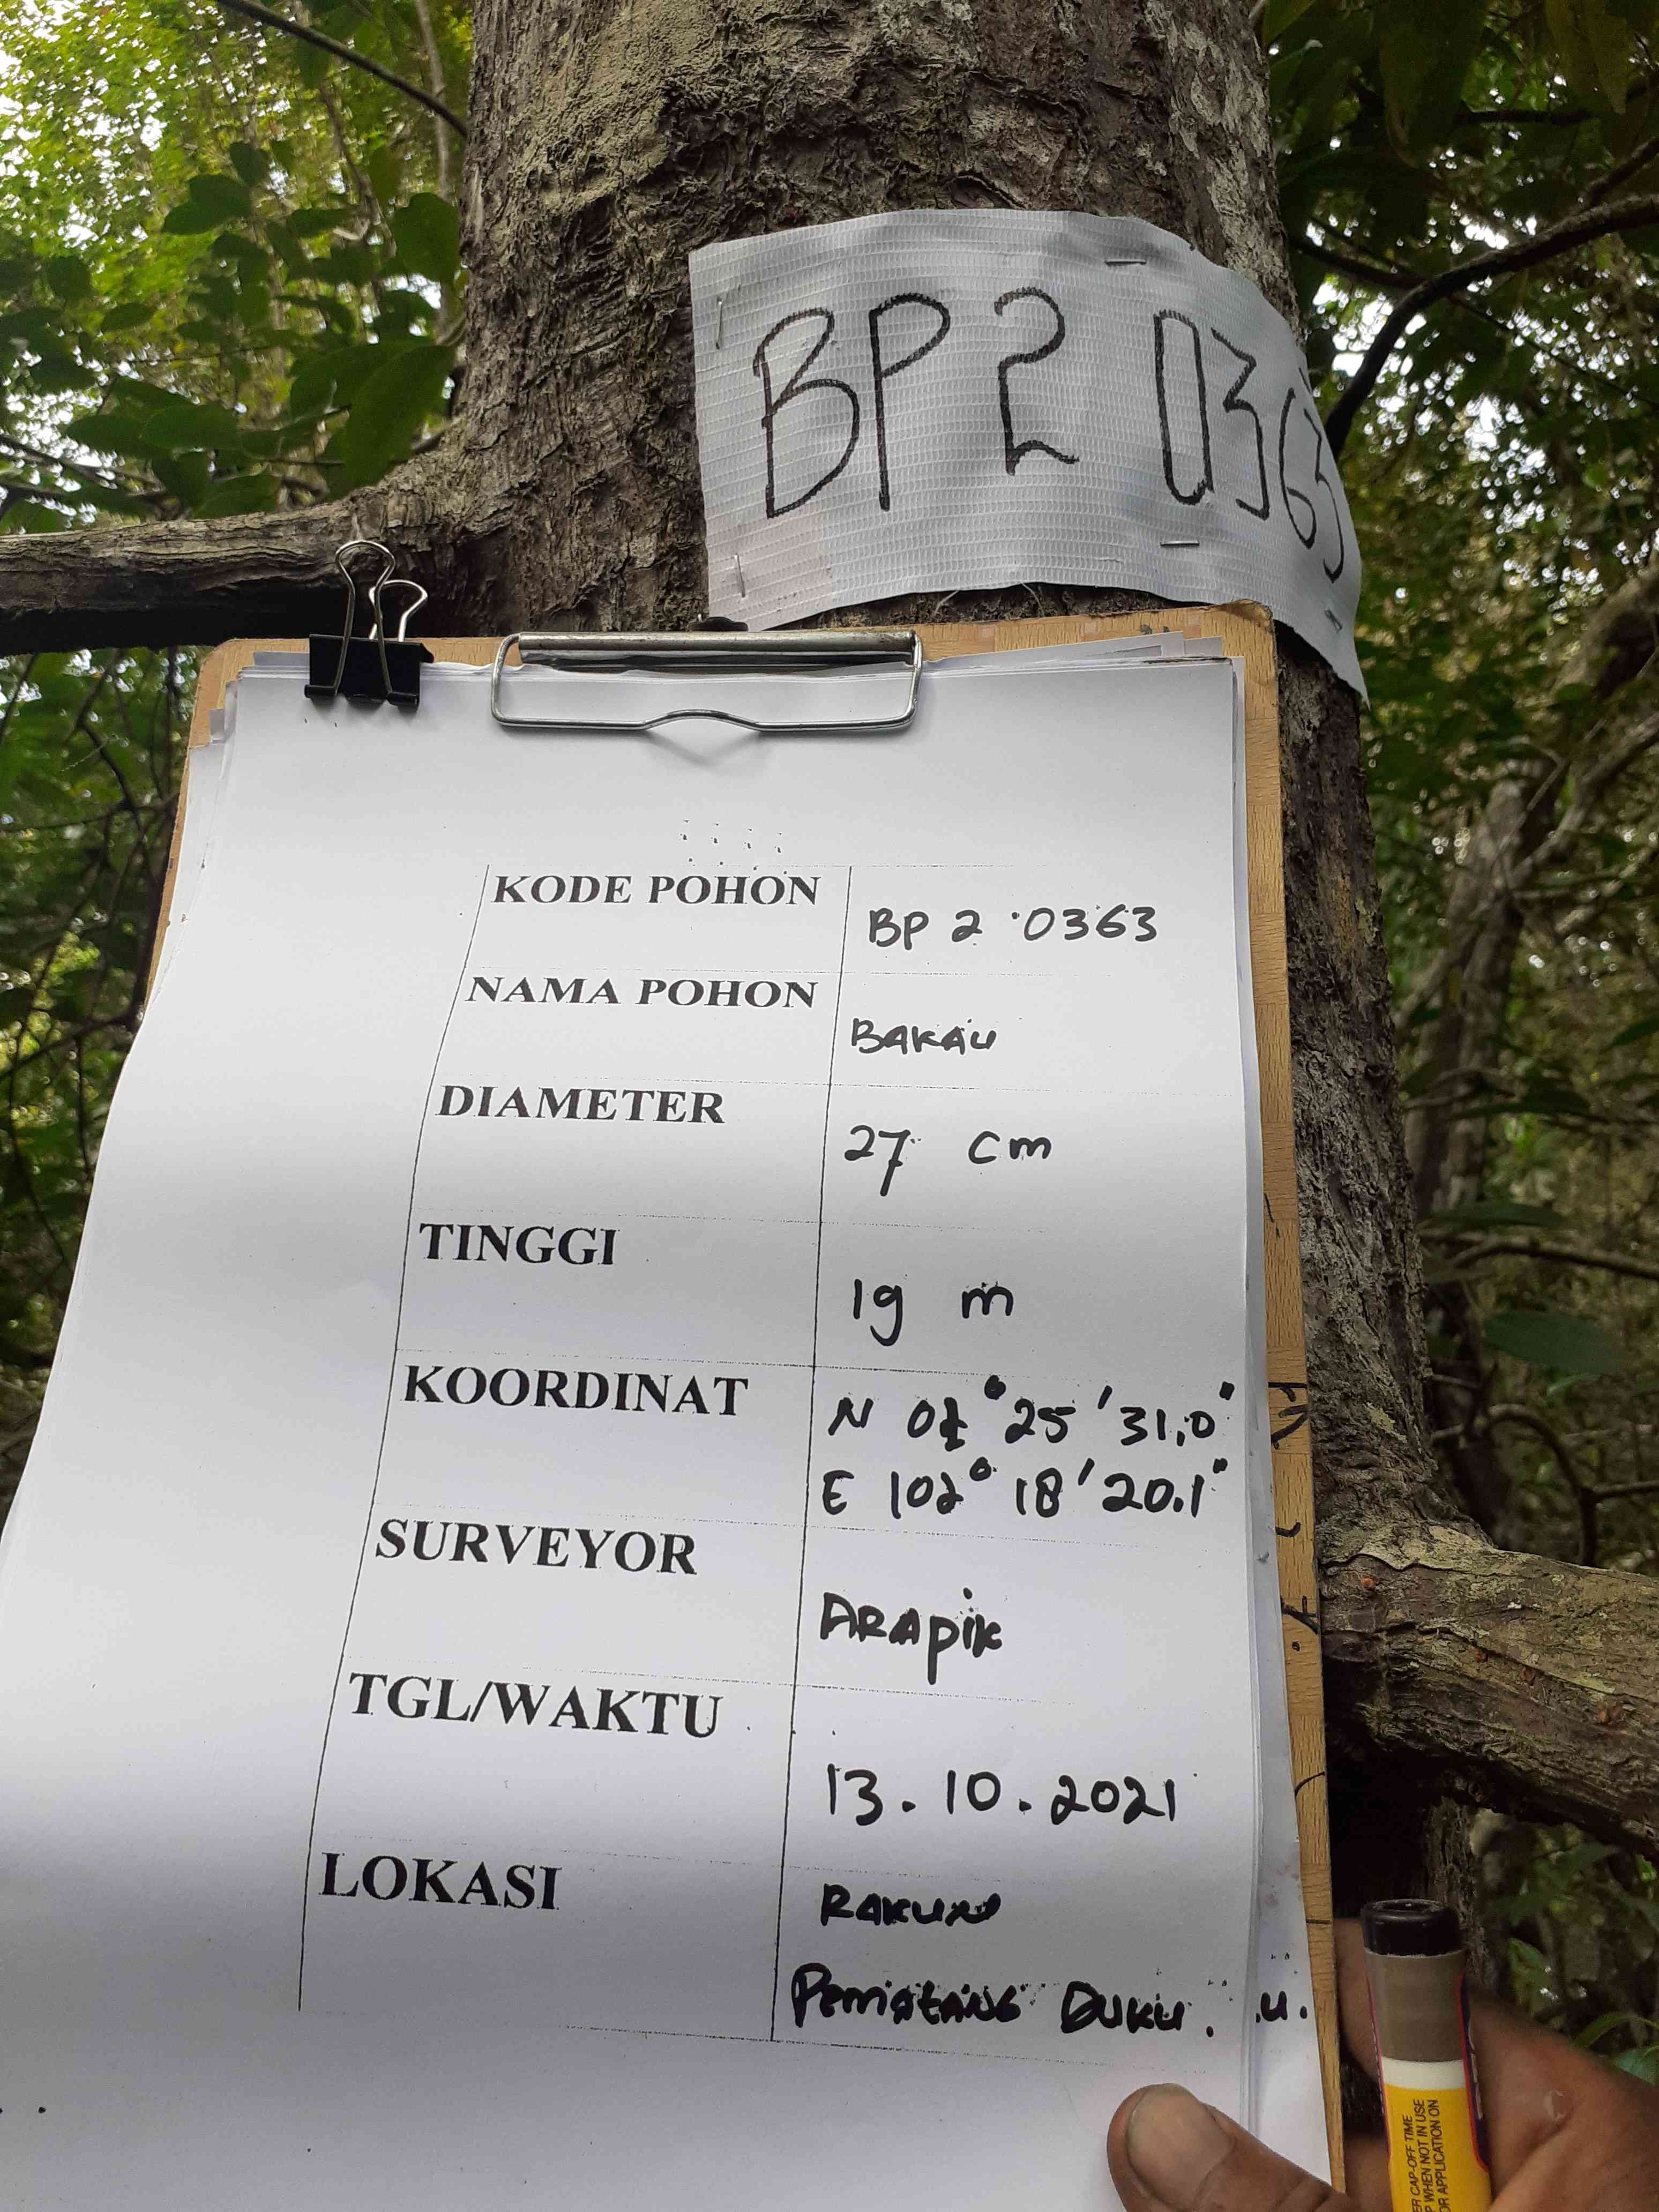 BP 2 0363
KODE POHON BP 2 0363
NAMA POHON BAKAU
DIAMETER 27 cm
TINGGI 19 m
KOORDINAT N 01° 25' 31,0"
E 102° 18' 20.1"
SURVEYOR ARAPIK
TGL/WAKTU 13.10.2021
LOKASI RAKUN
PEMATANG DUKU. U.
CAP-OFF TIME
WHEN NOT IN USE
OR APPLICATION ON